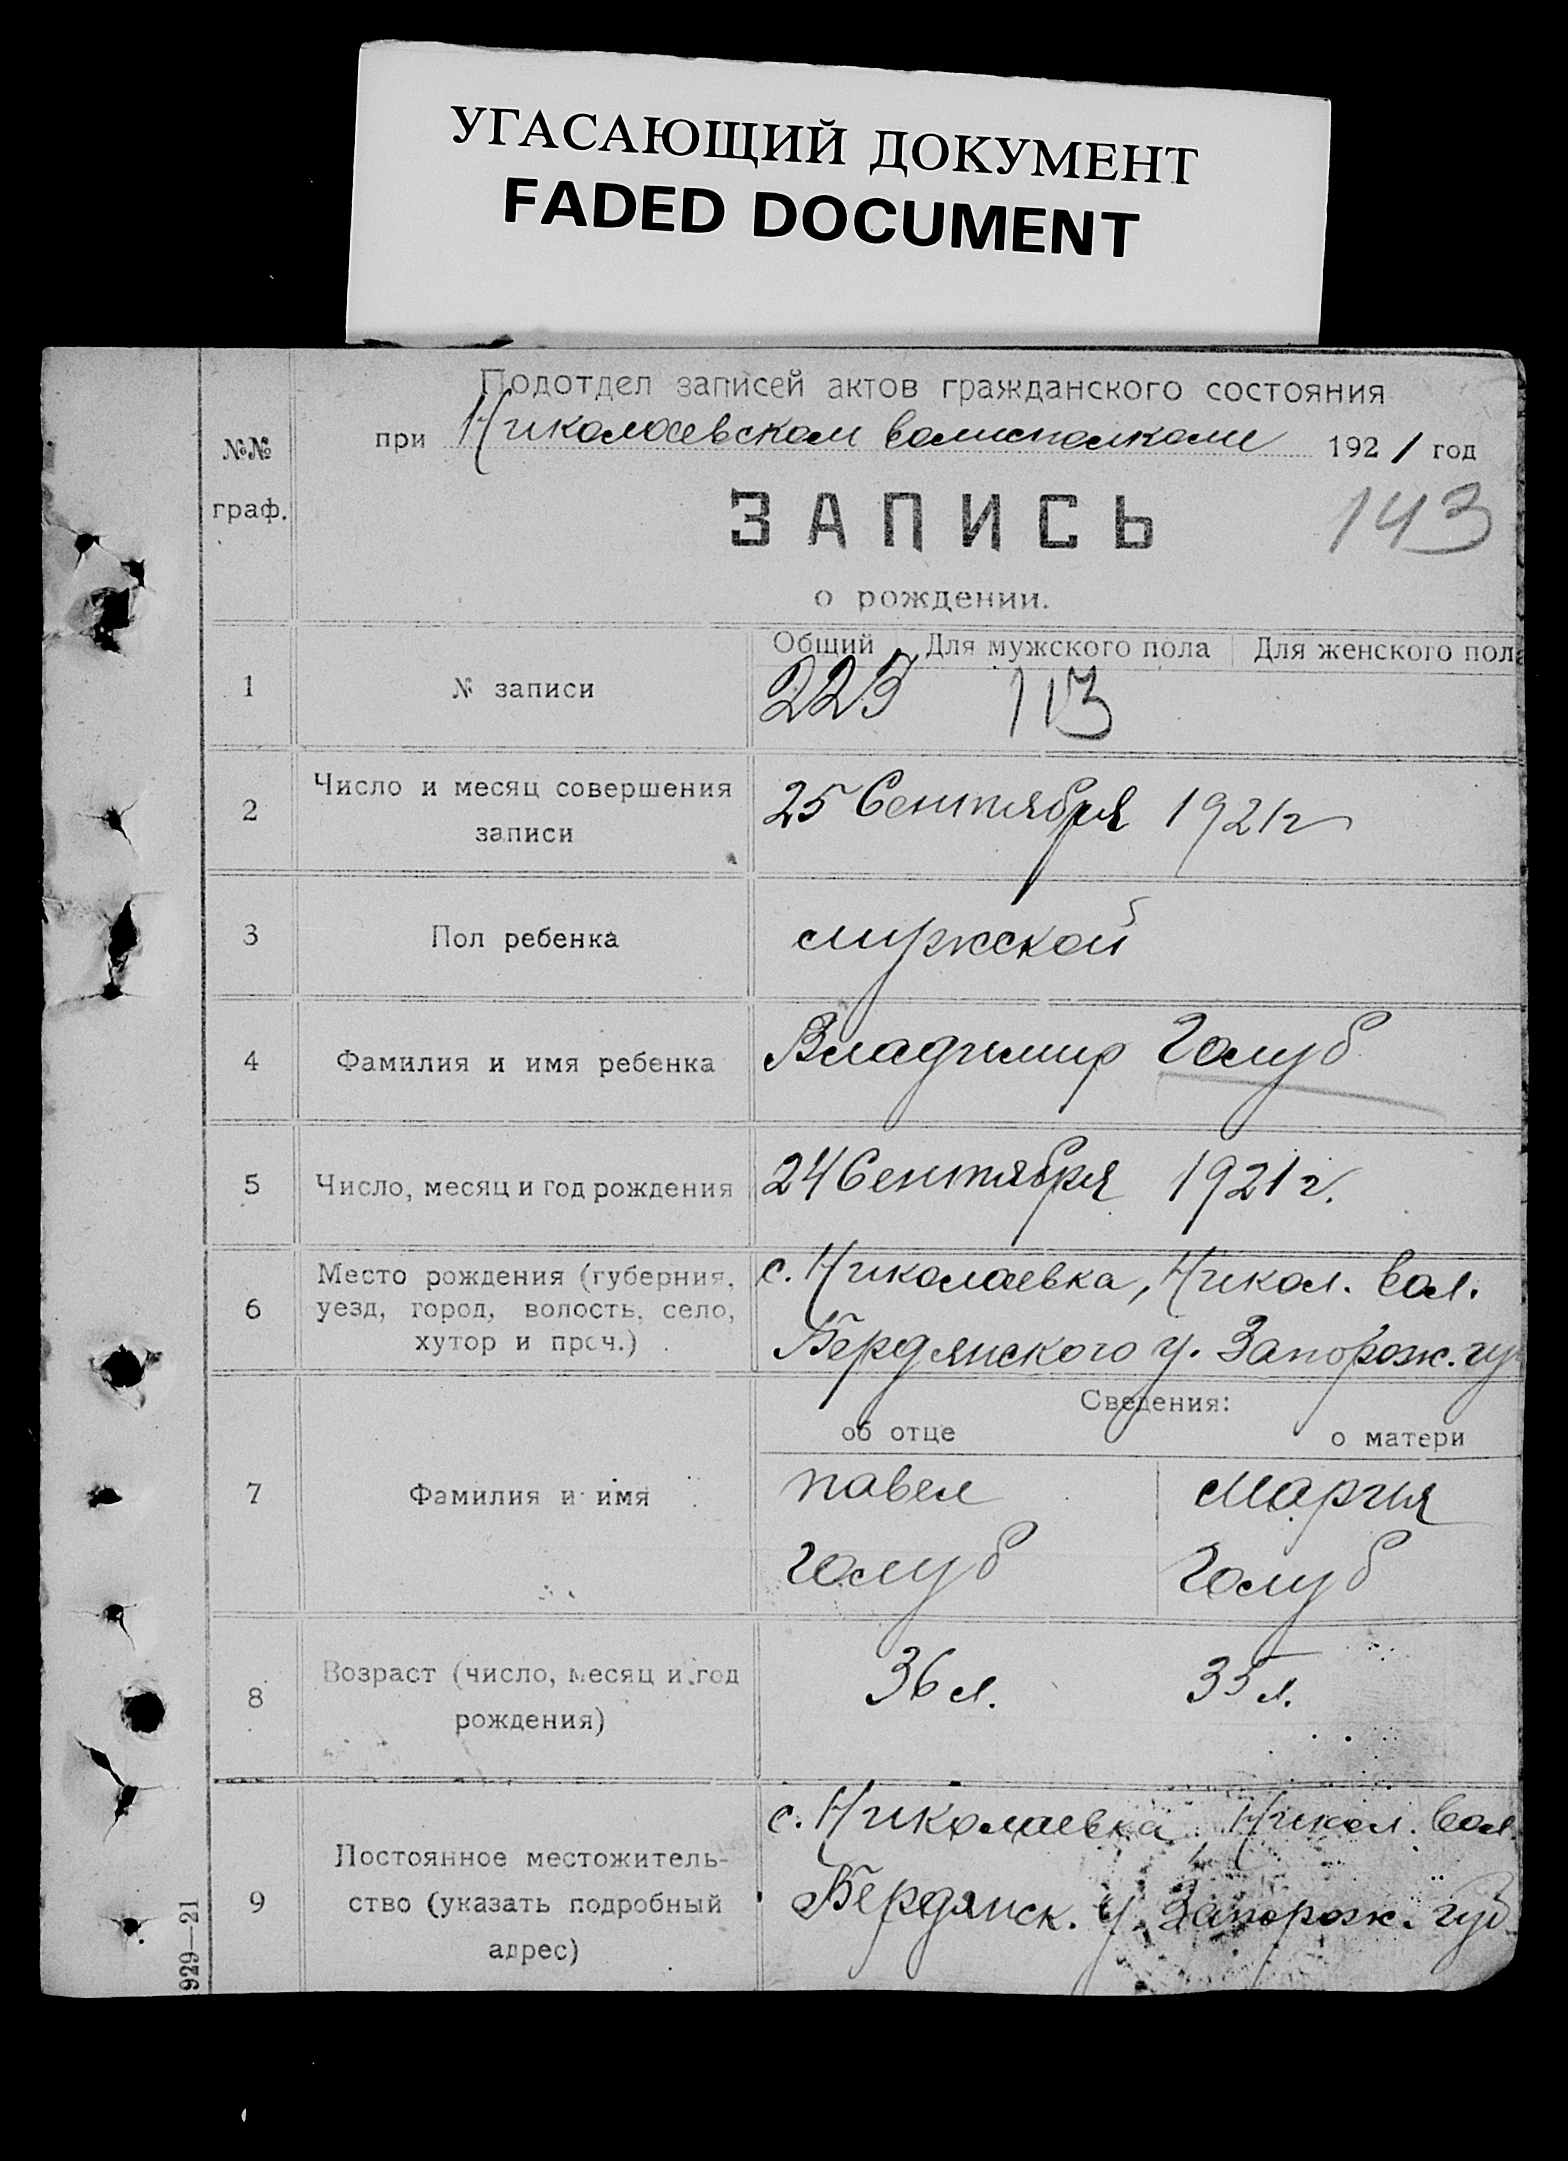 УГАСАЮЩИЙ ДОКУМЕНТ
FADED DOCUMENT
Подотдел записей актов гражданского состояния
при Николаевском волисполкоме 1921 год
№№
граф.
ЗАПИСЬ
143
о рождении.
Общий Для мужского пола Для женского пола
1 № записи 223 113
2 Число и месяц совершения
записи
25 Сентября 1921г
3 Пол ребенка мужской
4 Фамилия и имя ребенка Владимир Голуб
5 Число, месяц и год рождения 24 Сентября 1921 г.
6 Место рождения (губерния,
уезд, город, волость, село,
хутор и проч.)
с. Николаевка, Никол. вол.
Бердянского у. Запорож. гу
Сведения:
об отце о матери
7 Фамилия и имя
Павел Мария
Голуб Голуб
8 Возраст (число, месяц и год
рождения)
36 л. 35 л.
9 Постоянное местожитель-
ство (указать подробный
адрес)
с. Николаевка, Никол. вол.
Бердянск. у. Запорож. губ
929—21